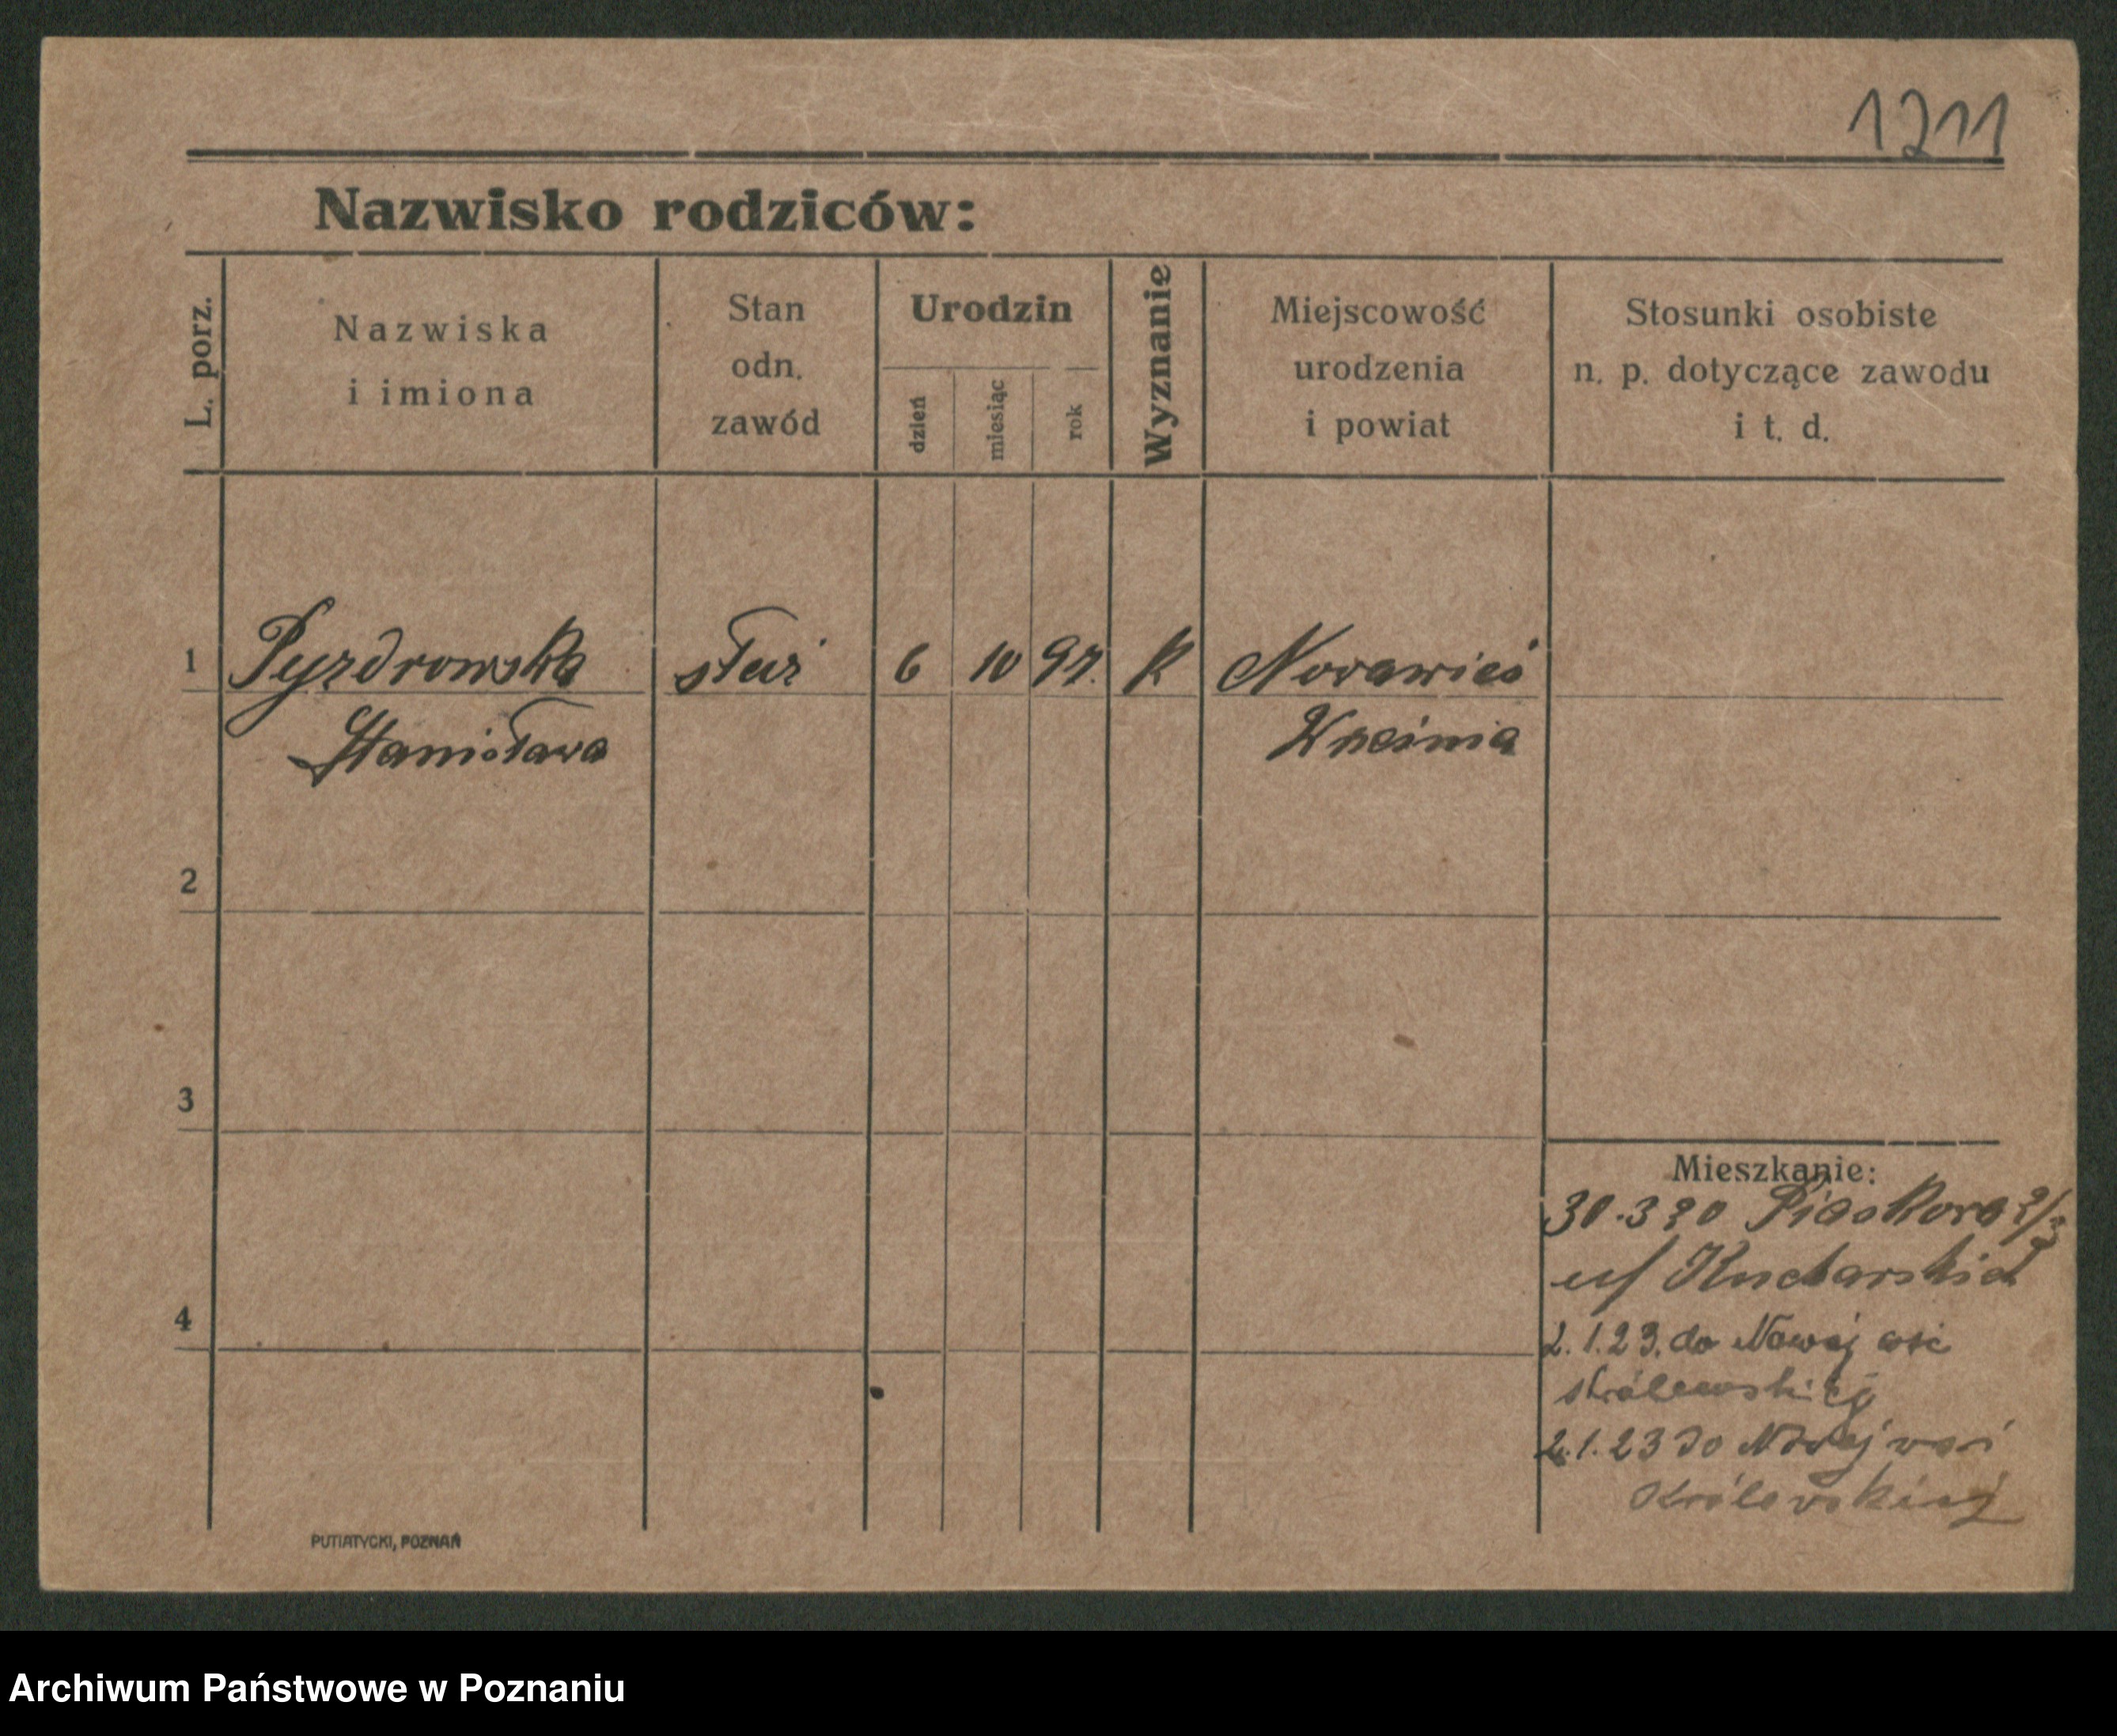 1211
Nazwisko rodziców:
L. porz.
Nazwiska
i imiona
Stan
odn.
zawód
Urodzin
dzień
miesiąc
rok
Wyznanie
Miejscowość
urodzenia
i powiat
Stosunki osobiste
n. p. dotyczące zawodu
i t. d.
1 Pyzdrowska służ 6 10 97. k Nowawieś
Stanisława Września
2
3
4
Mieszkanie:
30.3 20 Piaskowa 2/3
u/ Kucharskich
2.1.23. do Nowej wsi
królewskiej
2.1.23 do Nowej wsi
Królewskiej
PUTIATYCKI, POZNAŃ
Archiwum Państwowe w Poznaniu